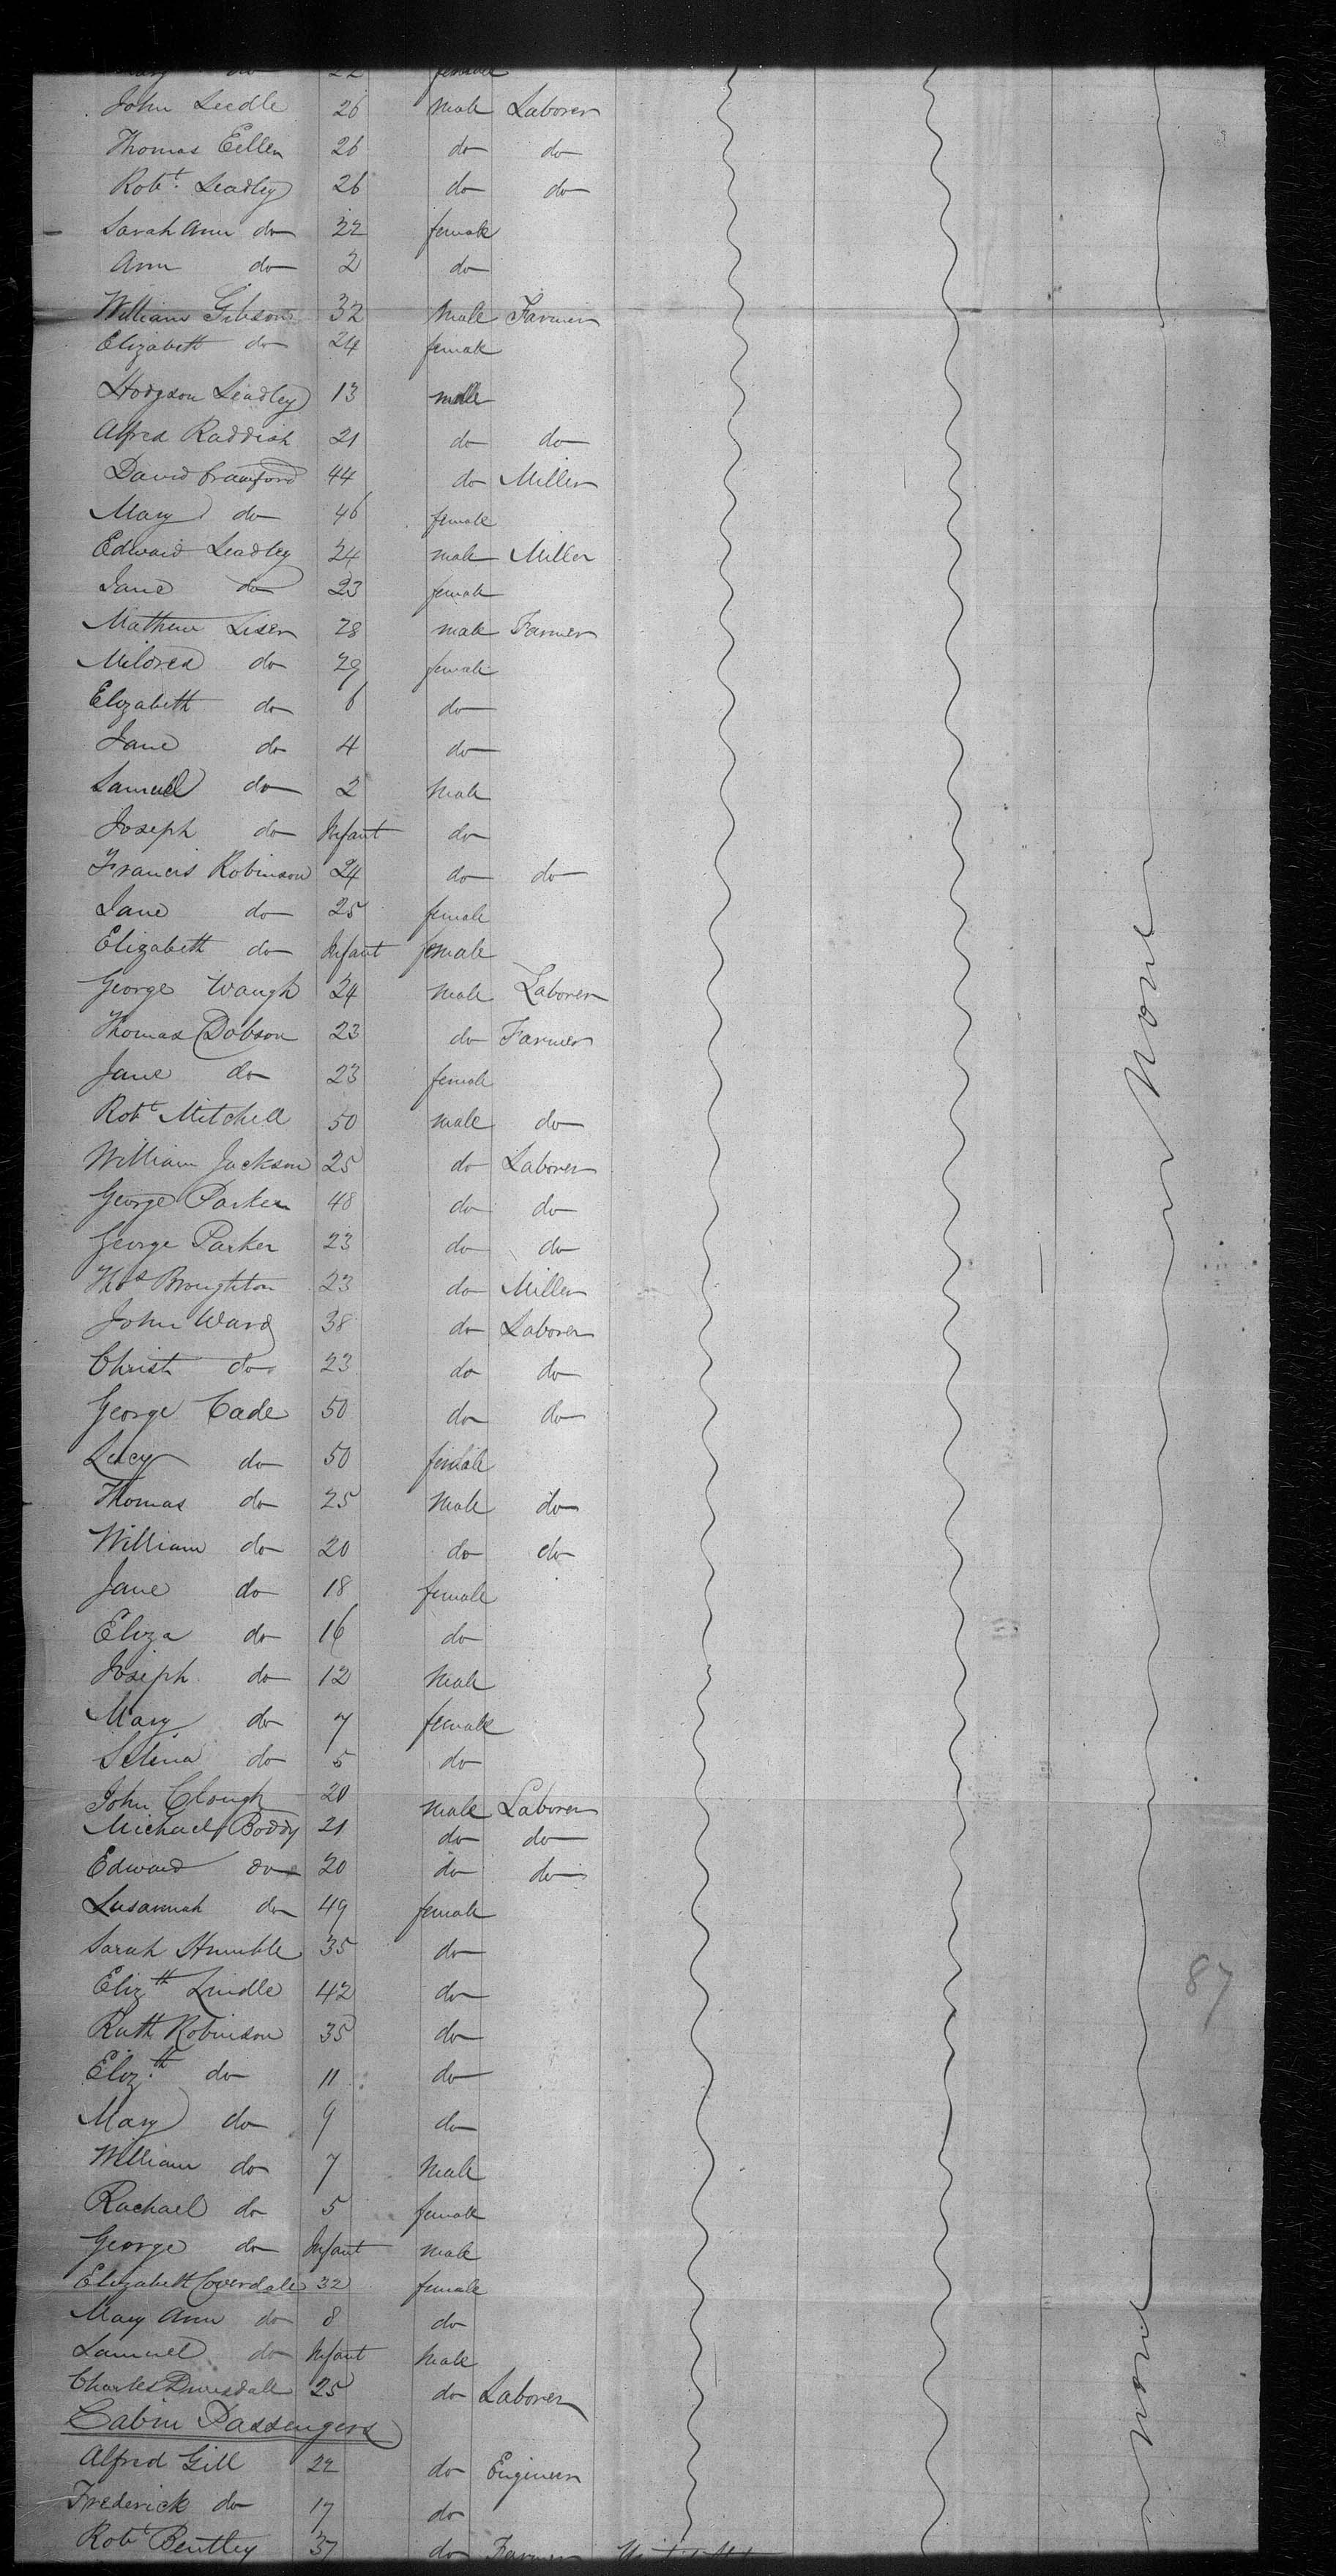 Mary do 22 female
John Leedle 26 Male Laborer
Thomas Eellen 26 do do
Robt. Leadley 26 do do
Sarah Ann do 22 female
Ann do 2 do
William Gibson 32 Male Farmer
Elizabeth do 24 female
Hodgson Leadley 13 male
Alfred Raddish 21 do do
David Crawford 44 do Miller
Mary do 46 female
Edward Leadley 24 male Miller
Jane do 23 female
Mathew Liser 28 male Farmer
Mildred do 29 female
Elizabeth do 6 do
Jane do 4 do
Samuel do 2 Male
Joseph do Infant do
Francis Robinson 24 do do
Jane do 25 female
Elizabeth do Infant female
George Waugh 24 Male Laborer
Thomas Dobson 23 do Farmer
Jane do 23 female
Robt Mitchell 50 male do
William Jackson 25 do Laborer
George Parker 48 do do
George Parker 23 do do
Thos Broughton 23 do Miller
John Ward 38 do Laborer
Christ do 23 do do
George Cade 50 do do
Lucy do 50 female
Thomas do 25 Male do
William do 20 do do
Jane do 18 female
Eliza do 16 do
Joseph do 12 Male
Mary do 7 female
Selina do 5 do
John Clough 20 Male Laborer
Michael Boddy 21 do do
Edward do 20 do do
Susannah do 49 female
Sarah Humble 35 do
Elizth Lindle 42 do
Ruth Robinson 35 do
Elizth do 11 do
Mary do 9 do
William do 7 Male
Rachael do 5 female
George do Infant Male
Elizabeth Coverdale 32 female
Mary Ann do 8 do
Samuel do Infant Male
Charles Drusdall 25 do Laborer
Cabin Passengers
Alfred Gill 22 do Engineer
Frederick do 17 do
Robt Bentley 37 do Farmer
None
87
None